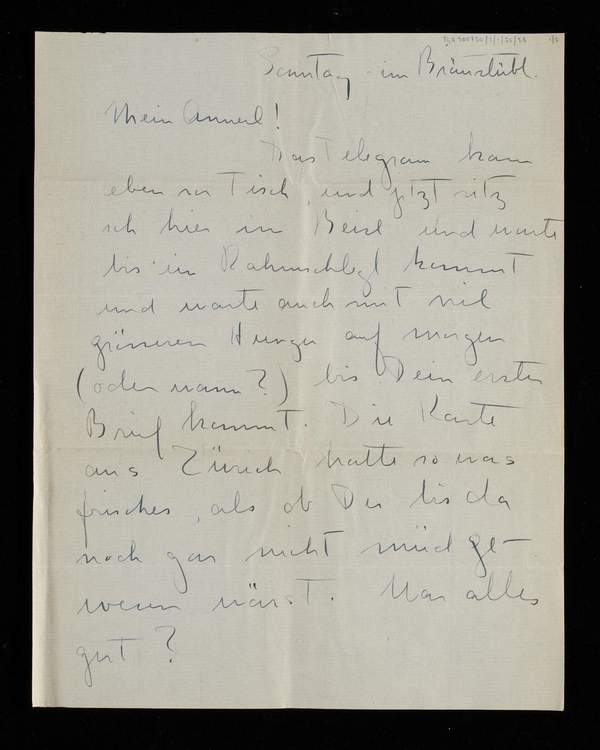 Sonntag im Bräustübl.
Mein Annerl!
Das Telegram kam
eben vor Tisch, und jetzt sitz
ich hier im Beisl und warte
bis ein Rahmschlegl kommt
und warte auch mit viel
grösseren Hunger auf morgen
(oder wann?) bis Dein erster
Brief kommt. Die Karte
aus Zürich hatte so was
frisches, als ob Du bis da
noch gar nicht müd ge-
wesen wärst. War alles
gut?